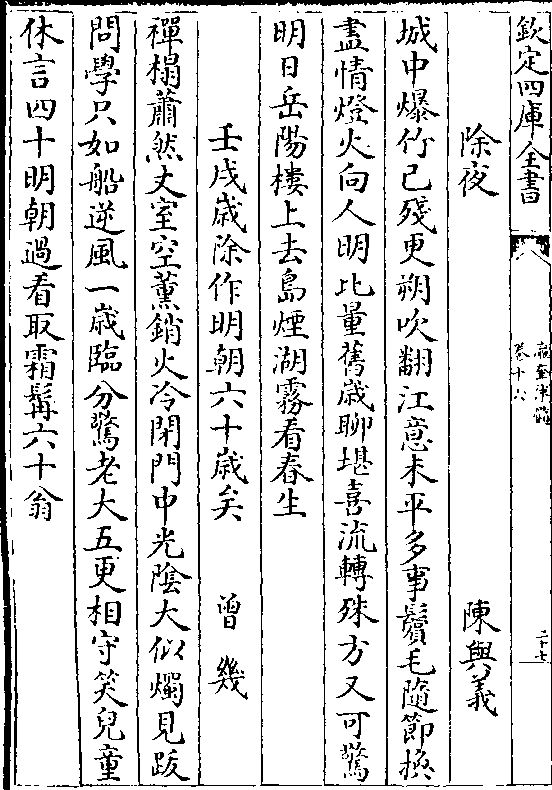 欽定四庫全書
卷十六
二十七
除夜　陳與義
城中爆竹已殘更朔吹翻江意未平多事鬢毛隨節換
盡情燈火向人明比量舊歲聊堪喜流轉殊方又可驚
明日岳陽樓上去島煙湖霧看春生
壬戌歲除作明朝六十歲矣　曾幾
禪榻蕭然丈室空薰銷火冷閉門中光陰大似燭見跋
問學只如船逆風一歲臨分驚老大五更相守笑兒童
休言四十明朝過看取霜髯六十翁